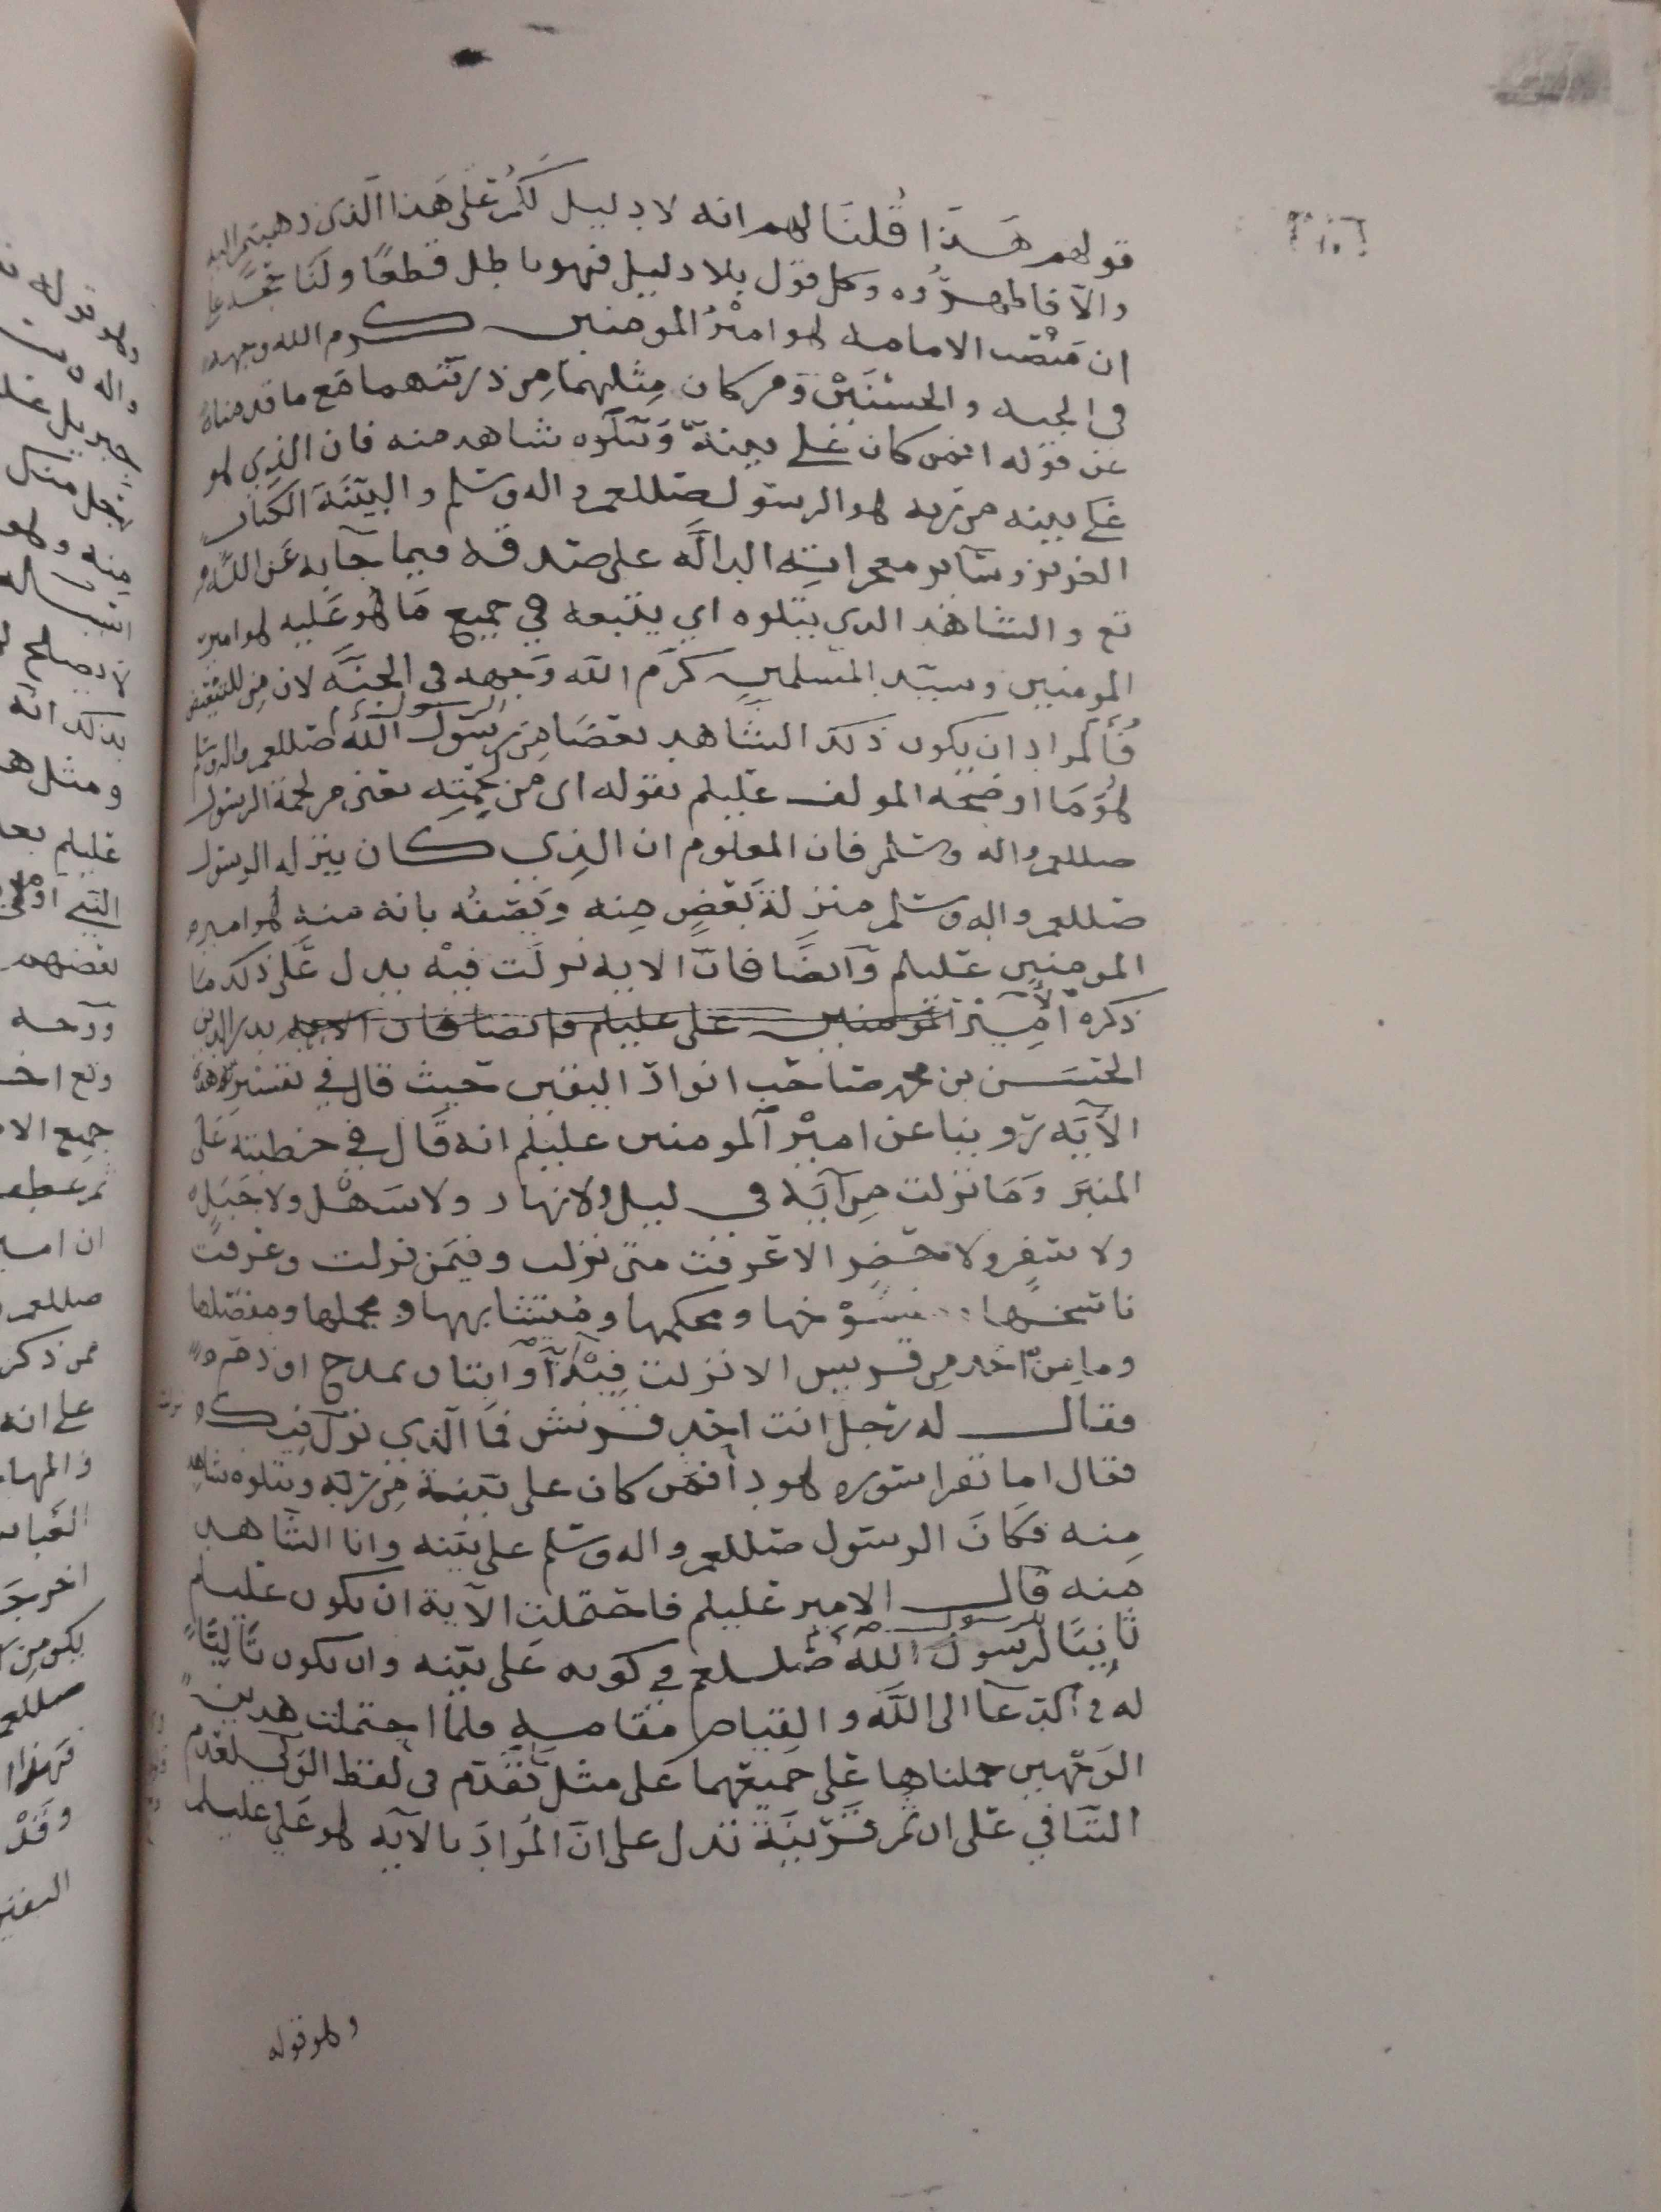 قولهم هذا قلنا لهم انه لا دليل لكم على هذا الذى ذهبتم اليه
والا فاظهروه وكل قول بلا دليل فهو باطل قطعا ولنا
ان منصب الامامه هو امير المومنين كرم الله وجهه
فى الجنه والحسنين ومن كان مثلهما من ذريتهما مع ما قدمناه
عن قوله افمن كان على بينة ويتلوه شاهد منه فان الذي هو
على بينه من ربه هو الرسول صللعم واله وسلم والبينة الكتاب
العزيز وسائر معجزاته الدالة على صدقه فيما جآ به عن الله
تع والشاهد الدي يتلوه اي يتبعه في جميع ما هو عليه هو امير
المومنين وسيد المسلمين كرم الله وجهه فى الجنه لان من للتبعيض
فالمراد ان يكون ذلك الشاهد بعضا من رسول الله صللعم واله وسلم
هو ما اوضحه المولف عليلم بقوله اى من لحمته يعنى من لحمة الرسول
صللعم واله وسلم فان المعلوم ان الذي كان ينزله الرسول
صللعم واله وسلم منزلة بعض منه ويصفه بانه منه هو امير
المومنين عليلم وآيضا فان الايه نزلت فيه يدل على ذلك ما
ذكره الامير المومنين على عليلم وايضا فان الايه بدر الدين
الحسن بن محمد صاحب انوار اليقين حيث قال في تفسير هذه
الآيه روينا عن امير آلمومنين عليلم انه قال في خطبته على
المنبر وما نزلت من آيه فى ليل ولا نهار ولا سهل ولا جبل
ولا سفر ولا حضر الا عرفت متى نزلت وفيمن نزلت وعرفت
ناسخها ومنسوخها ومحكمها ومتشابهها ومجملها ومفصلها
وما من احد من قريش الا نزلت فيه آية او ايتان بمدح او ذم
فقال له رجل انت احد قريش فما الذي نزل فيك
فقال اما تقرا سوره هود افمن كان على بينة من ربه ويتلوه شاهد
منه فكان الرسول صللعم واله وسلم على بينه وانا الشاهد
منه قال الامير عليلم فاحتملت الآية ان يكون عليلم
ثانيا لرسول الله صللعم في كونه على بينه وان يكون تاليا
له في الدعآ الى الله والقيام مقامه فلما احتملت هذين
الوجهين حملناها على جميعهما على مثل ما تقدم فى لفظ الولي لعدم
التنافي على ان ثم قرينة تدل على ان المراد بالآيه هو على عليلم
وهو قوله